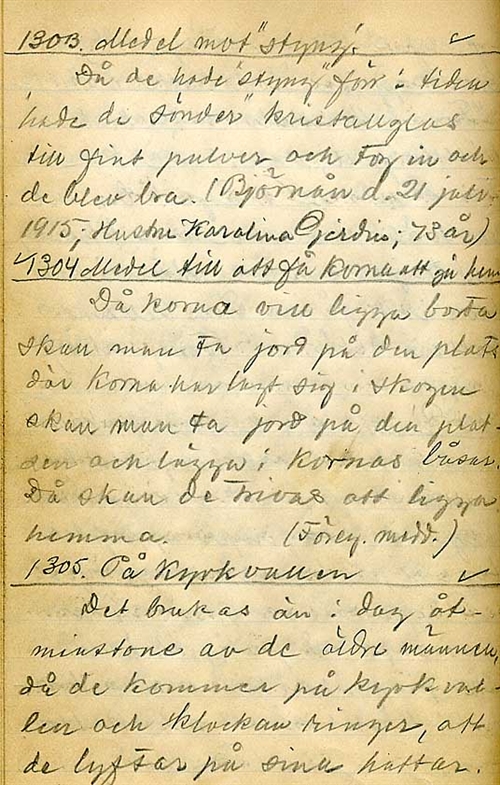 1303. Medel mot "styng".
Då de hade "styng" förr i tiden
hade de sönder kristallglas
till fint pulver och tog in och
de blev bra. (Björnån d. 21 juli
1915; Hustru Karolina Gerdin; 73 år)
1304 Medel till att få korna att gå hem
Då korna vill ligga borta
skall man ta jord på den plats
där korna har lagt sig i skogen
skall man ta jord på den plat-
sen och lägga i kornas båsar.
Då skall de trivas att ligga
hemma. (Föreg. medd.)
1305. På kyrkvallen
Det brukas än i dag åt-
minstone av de äldre männen,
då de kommer på kyrkval-
len och klockan ringer, att
de lyftar på sina hattar.